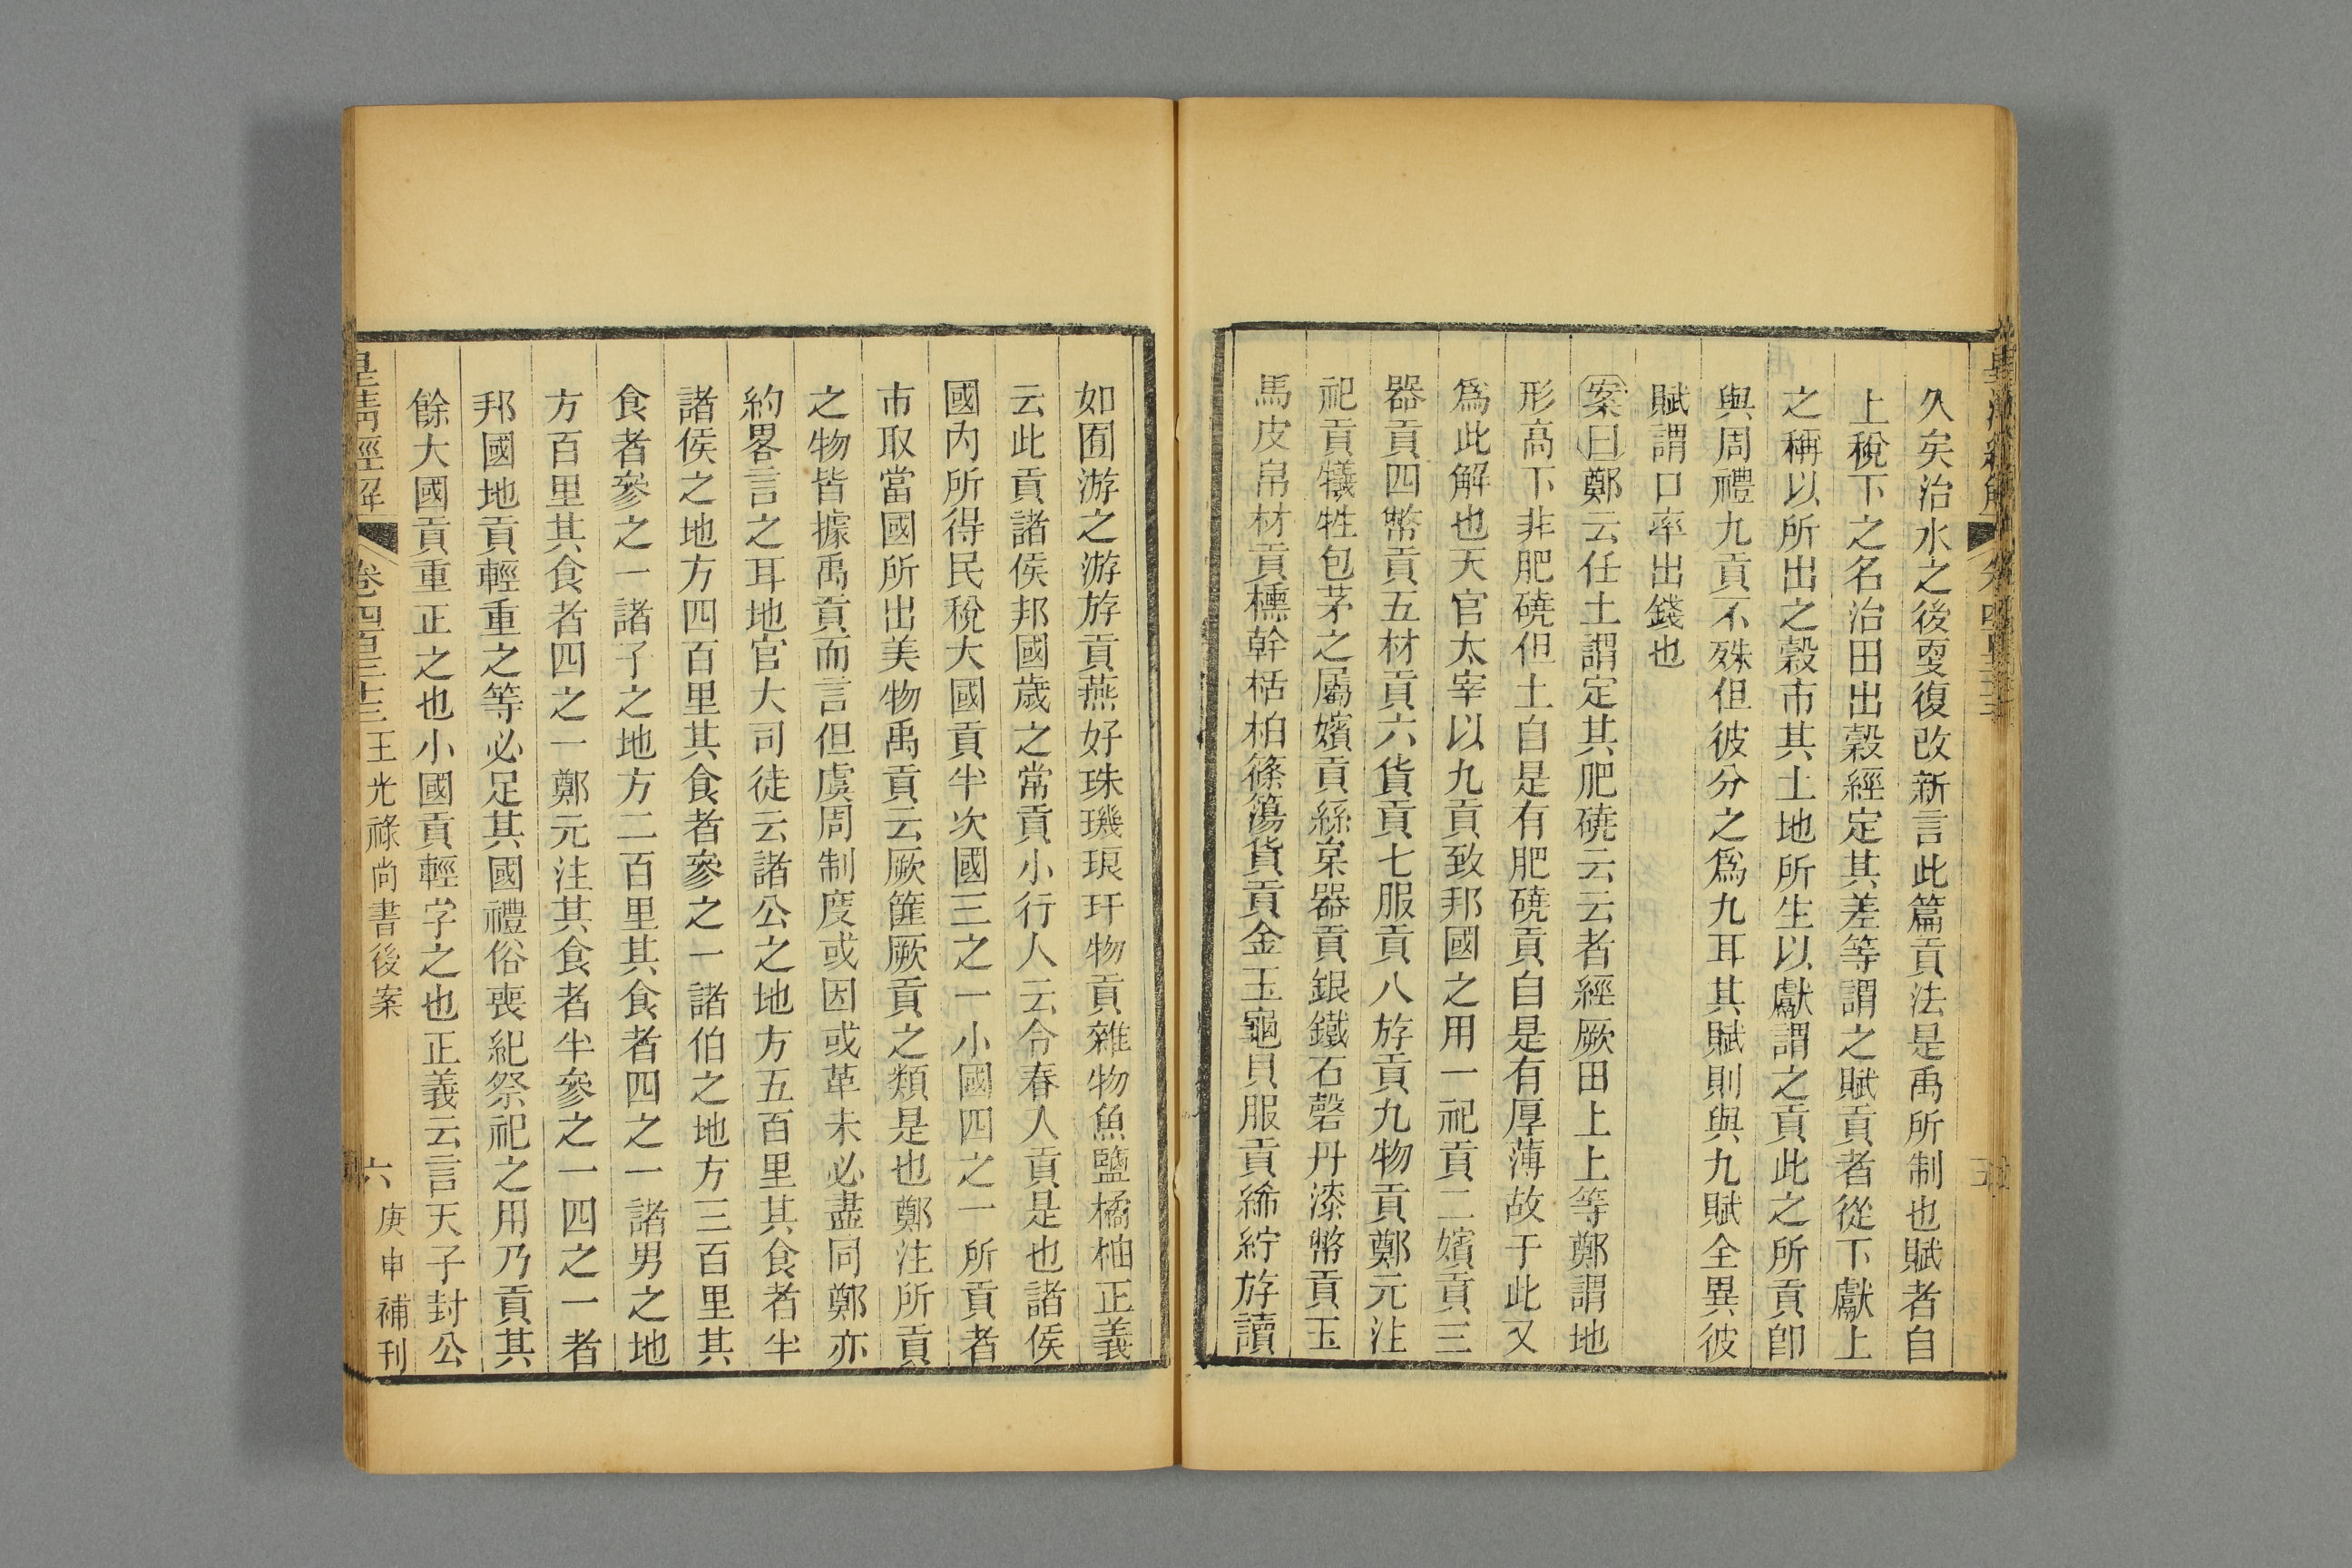 久矣治水之後更復改新言此篇貢法是禹所制也賦者自
上稅下之名治田出穀經定其差等謂之賦貢者從下獻上
之稱以所出之穀市其土地所生以獻謂之貢此之所貢卽
與周禮九貢不殊但彼分之爲九耳其賦則與九賦全異彼
賦謂口率出錢也
案曰鄭云任土謂定其肥磽云云者經厥田上上等鄭謂地
形高下非肥磽但土自是有肥磽貢自是有厚薄故于此又
爲此解也天官太宰以九貢致邦國之用一祀貢二嬪貢三
器貢四幣貢五材貢六貨貢七服貢八斿貢九物貢鄭元注
祀貢犧牲包茅之屬嬪貢絲枲器貢銀鐵石磬丹漆幣貢玉
馬皮帛材貢櫄幹栝柏篠簜貨貢金玉龜貝服貢絺紵斿讀
如囿游之游斿貢燕好珠璣琅玕物貢雜物魚鹽橘柚正義
云此貢諸侯邦國歲之常貢小行人云令春人貢是也諸侯
國內所得民稅大國貢半次國三之一小國四之一所貢者
市取當國所出美物禹貢云厥篚厥貢之類是也鄭注所貢
之物皆據禹貢而言但虞周制度或因或革未必盡同鄭亦
約畧言之耳地官大司徒云諸公之地方五百里其食者半
諸侯之地方四百里其食者參之一諸伯之地方三百里其
食者參之一諸子之地方二百里其食者四之一諸男之地
方百里其食者四之一鄭元注其食者半參之一四之一者
邦國地貢輕重之等必足其國禮俗喪紀祭祀之用乃貢其
餘大國貢重正之也小國貢輕字之也正義云言天子封公
皇清經解 卷四百三十三 王光祿尚書後案 六 庚申補刊